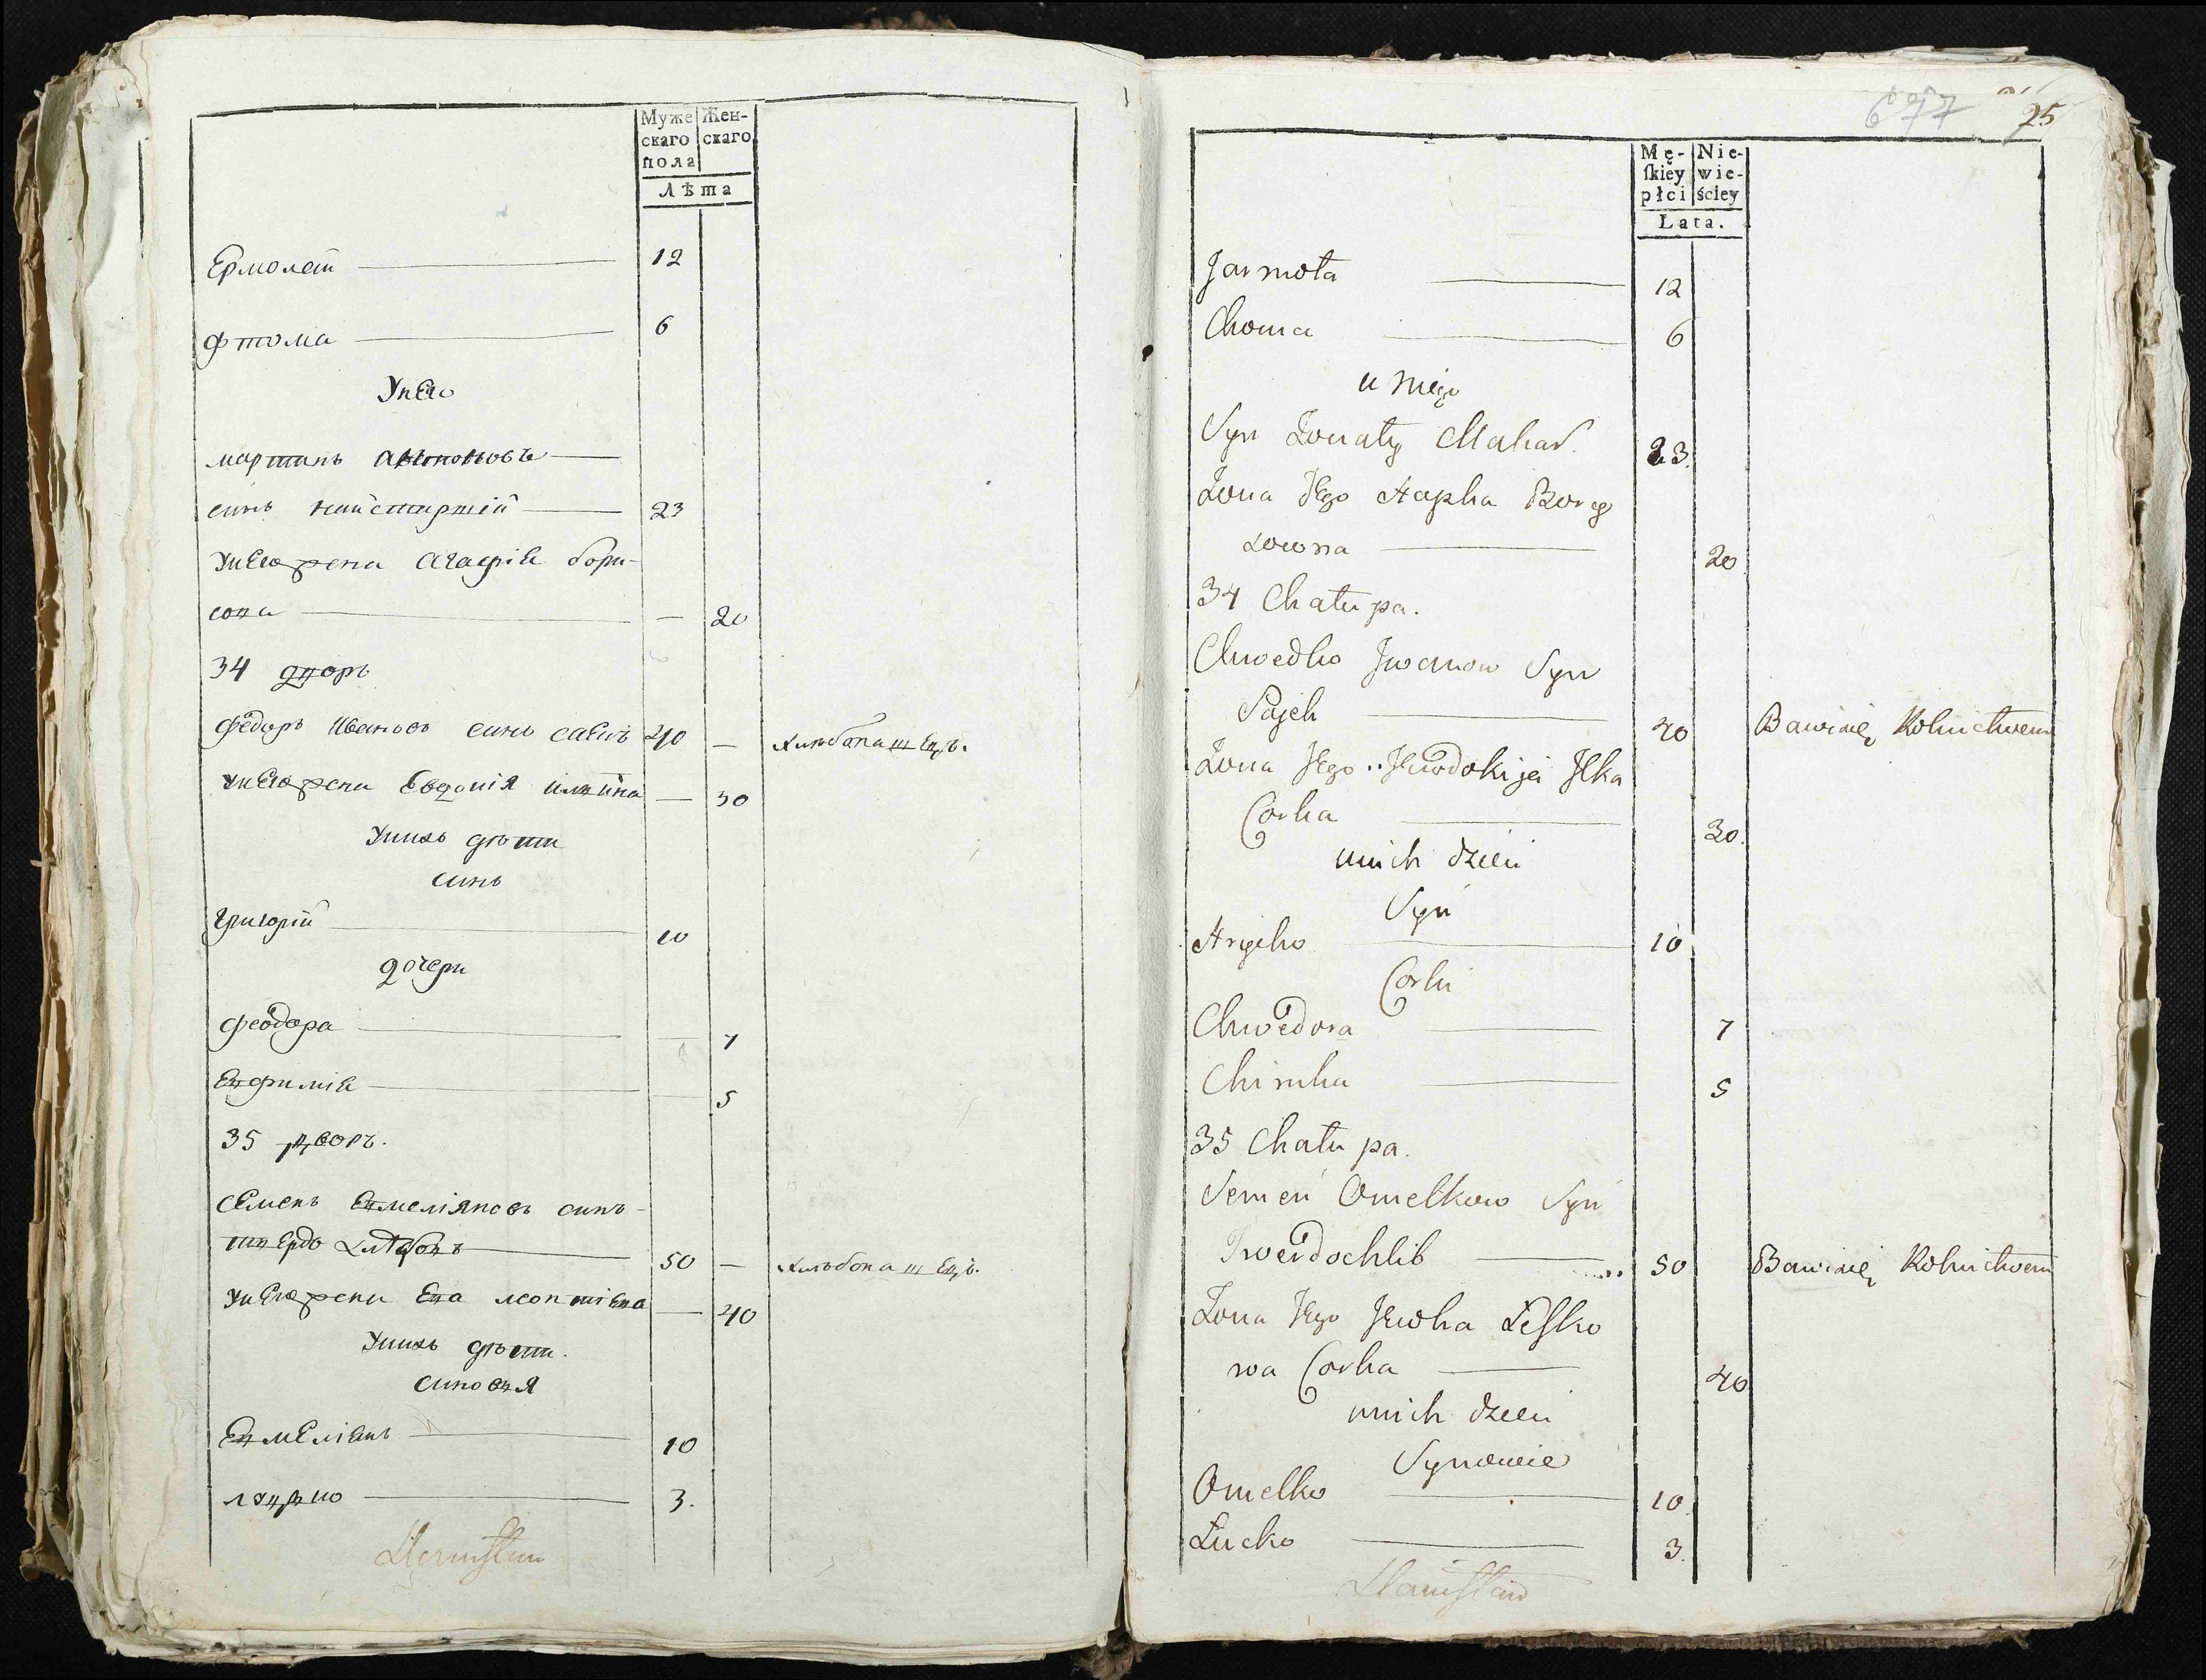 Муже
скаго
пола
Жен-
скаго
Лѣта
Ермолай 12
Фтома 6
У нево
мартинъ антоновъ
синъ найстаршій 23
У нево жена Агафія бори-
сова — 20
34 дворъ
Федоръ Ивановъ синъ саечъ 40 — Хлѣбопашецъ.
У нево жена Евдокія илина — 30
У нихъ дѣти
синъ
Григорій 10
дочери
Феодора — 7
Евфимія — 5
35 дворъ.
Семенъ Емеліяновъ синъ
твердохлѣбъ 50 — Хлѣбопашецъ.
У нево жена Ева леонтіева — 40
У нихъ дѣти.
синовья
Емеліянъ 10
луцко 3.
677 25
Mę-
ſkiey
płci
Nie-
wie-
ściey
Lata.
Jarmoła 12
Choma 6
u niego
Syn Żonaty Makar. 23.
Żona Jego Hapka Bory
sowna 20
34 Chałupa.
Chwedko Iwanow Syn
Sajek 40 Bawi się Rolnictwem
Żona Jego Jewdokija Ilka
Corka 30.
u nich dzieci
Syn
Hryćko 10
Corki
Chwedora 7
Chimka 5
35 Chałupa.
Semen Omelkow Syn
Twerdochlib 50 Bawi się Rolnictwem
Żona Jego Jewka Leſko
wa Corka 40
u nich dzieci
Synowie
Omelko 10.
Łucko 3.